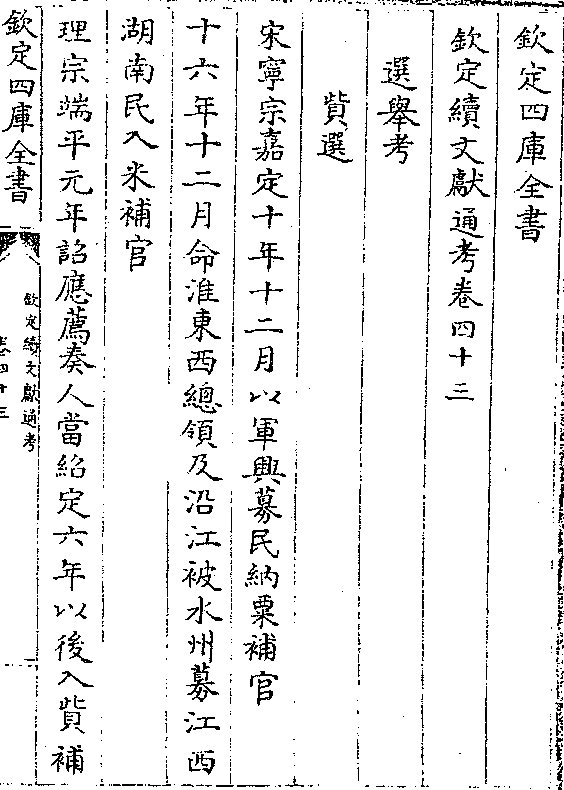 欽定四庫全書
欽定續文獻通考卷四十三
選舉考
貲選
宋寧宗嘉定十年十二月以軍興募民納粟補官
十六年十二月命淮東西總領及沿江被水州募江西
湖南民入米補官
理宗端平元年詔應薦奏人當紹定六年以後入貲補
欽定四庫全書
欽定續文獻通考
卷四十三
一